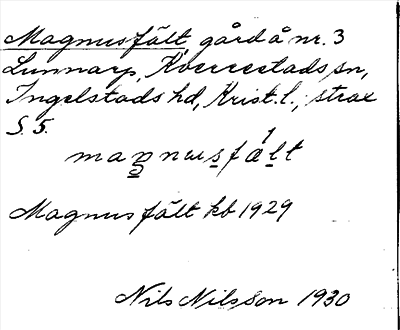 Magnusfält, gård å nr. 3
Lunnarp, Kverrestads sn,
Ingelstads hd, Krist. l., strax
S. 5.
maŋnusfält
Magnusfält kb 1929
Nils Nilsson 1930